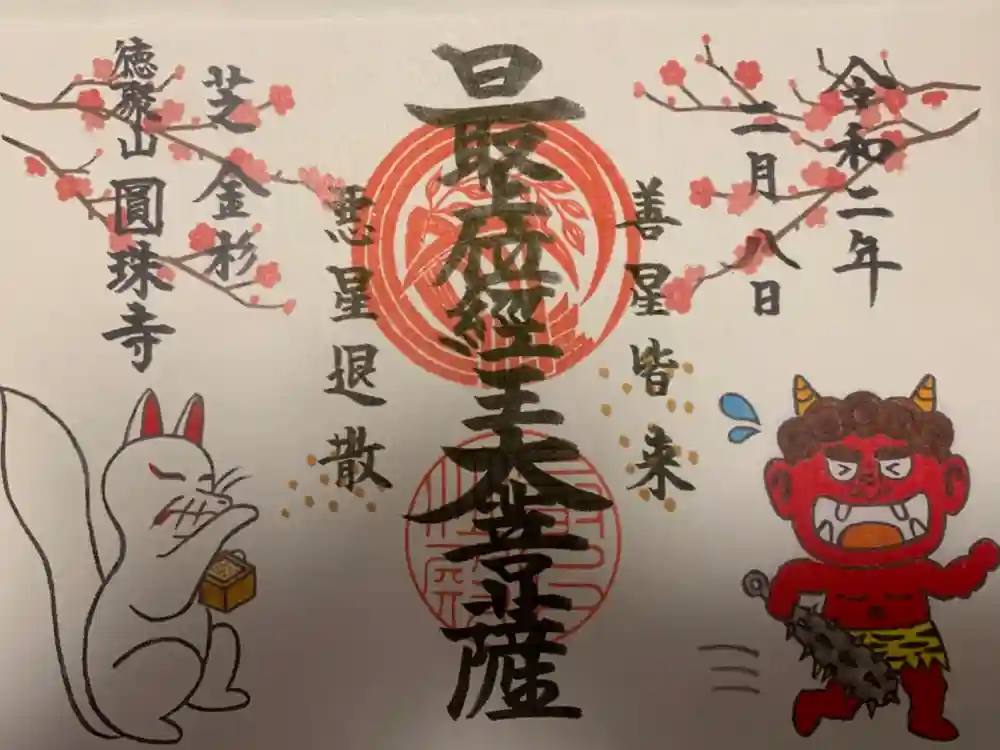 令和二年
二月八日
善星皆来
最上位經王大菩薩
悪星退散
芝金杉
徳聚山圓珠寺